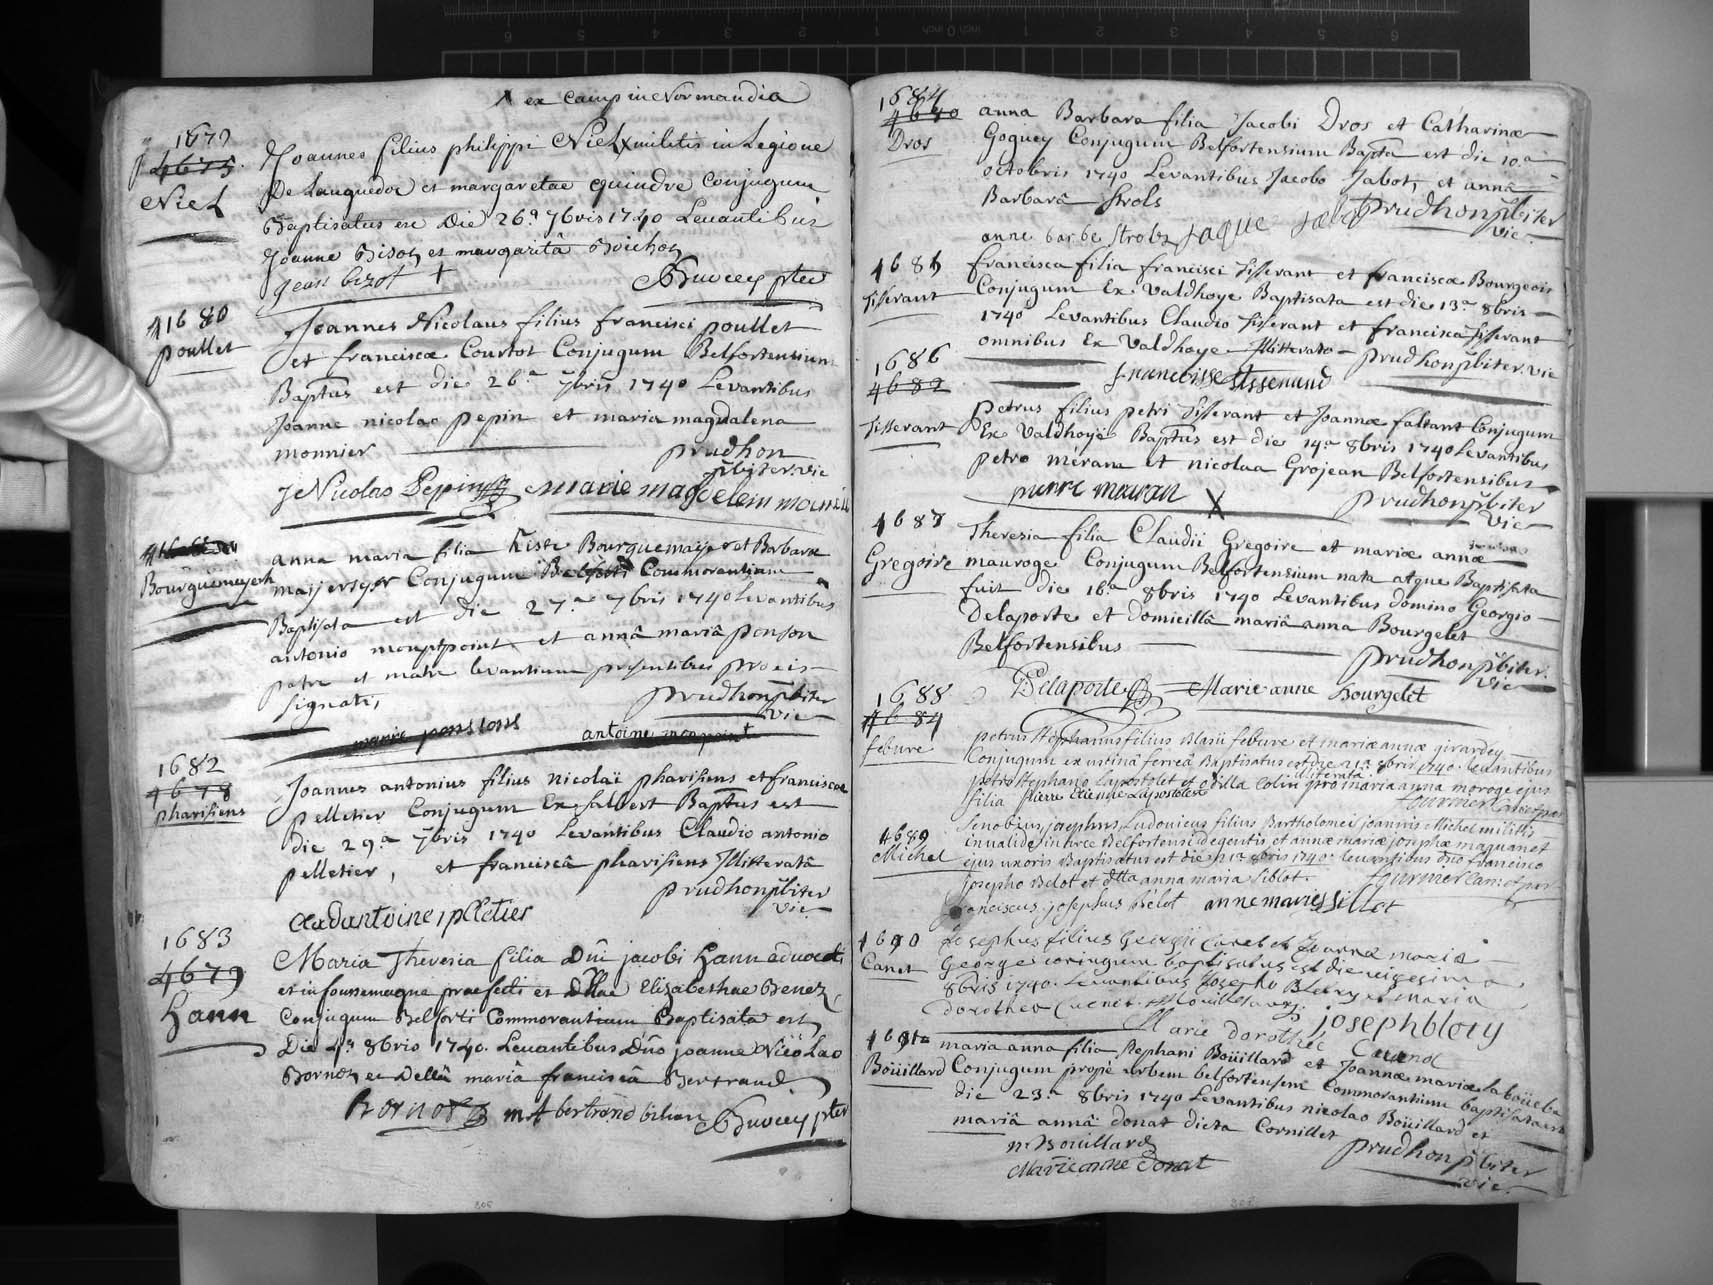 x ex camp in Normandia
1679
4675
Niel
Joannes filius philippi Niel x militis in Legione
De Languedoc et margaretae quindre Conjugum
Baptisatus est Die 26.a 7bris 1740 Levantibus
Joanne Bizot et margaritâ Boichot
Jean bizot + pter
1680
poullet
Joannes Nicolaus filius francisci poullet
et franciscæ Courtot Conjugum Belfortensium
Baptus est die 26.a 7bris 1740 Levantibus
Joanne nicolao pepin et maria magdalena
monnier prudhon
pbiter. vic
J Nicolas Pepin marie magdelein
Bourguemeyerh
anna maria filia Bourguemaijer et Barbaræ
Conjugum Belforti Commorantium
Baptisata est die 27.a 7bris 1740 Levantibus
antonio monpoint et annâ mariâ ponson
patre et matre levantium presentibus pro eis
signati, prudhon pbiter
vic
marie ponssons antoine monpoint
1682
4678
pharisiens
Joannes antonius filius nicolaï pharisiens et franciscæ
pelletier Conjugum Ex salbert Baptus est
die 29.a 7bris 1740 Levantibus Claudio antonio
pelletier, et franciscâ pharisiens Illitteratâ
prudhon pbiter
vic
1683
4679
hann
Maria Theresia filia Dni jacobi hann advocati
et in foussemagne praefecti et Dllae Elizabethae Benez
Conjugum Belforti Commorantium Baptisata est
Die 4.a 8bris 1740. Levantibus Dno joanne Nicolao
Bornot et Dellâ mariâ franciscâ Bertrand
Bornot pter
1684
4680
Dros
anna Barbara filia Jacobi Dros et Catharinæ
Goguey Conjugum Belfortensium Bapta est die 10.a
octobris 1740 Levantibus Jacobo Jabot, et annâ
Barbarâ Strols prudhon pbiter
vic
anne barbe Strolz Jaque Jabot
1685
Tisserant
francisca filia francisci Tisserant et franciscæ Bourgeois
Conjugum Ex Valdhoye Baptisata est die 13.a 8bris
1740 Levantibus Claudio Tisserant et francisca Tisserant
omnibus Ex Valdhoye Illitterato prudhon pbiter. vic
1686
4682
Tisserant
petrus filius petri Tisserant et Joannæ faltant Conjugum
Ex Valdhoye Baptus est die 14.a 8bris 1740 Levantibus
petro et nicolaa Grojean Belfortensibus
X prudhon pbiter
vic
1687
Gregoire
Theresia filia Claudii Gregoire et mariæ annæ
mauroge Conjugum Belfortensium nata atque Baptisata
fuit die 16.a 8bris 1740 Levantibus domino Georgio
Delaporte et Domicillâ mariâ anna Bourgelet
Belfortensibus prudhon pbiter.
vic
Delaporte Marie anne Bourgelet
1688
4684
febure
petrus Stephanus filius Blasii febure et mariæ annæ girardey
Conjugum ex ustinâ ferreâ Baptisatus est die 21a 8bris 1740. Levantibus
petro Stephano Lapostolet et odilla Colin pro maria anna moroge ejus
filia pierre Etienne Lapostolest
1689
Michel
Senobius, josephus, Ludovicus filius Bartholomei joannis Michel militis
invalide in arce Belfortensi degentis, et annæ mariæ josephæ maquanet
ejus uxoris Baptisatus est die 8bris 1740. levantibus dno francisco
josepho Belot et dlla anna maria Siblot.
franciscus josephus belot anne marie
1690
Canet
Josephus filius Georgii Canet et Joannæ mariæ
George conjugum baptisatus est die vigesima
8bris 1740. Levantibus Josepho Bletry et maria
dorothea Cuenet.
Marie Dorothée josephblety
1691
Boüillard
maria anna filia Stephani Boüillard et Joannæ mariæ
Conjugum propè urbem belfortensem Commorantium baptisata est
die 23.a 8bris 1740 Levantibus nicolao Boüillard et
mariâ annâ donat dicta Cornillet prudhon pbiter
n Boüillard vic
Marie anne donat